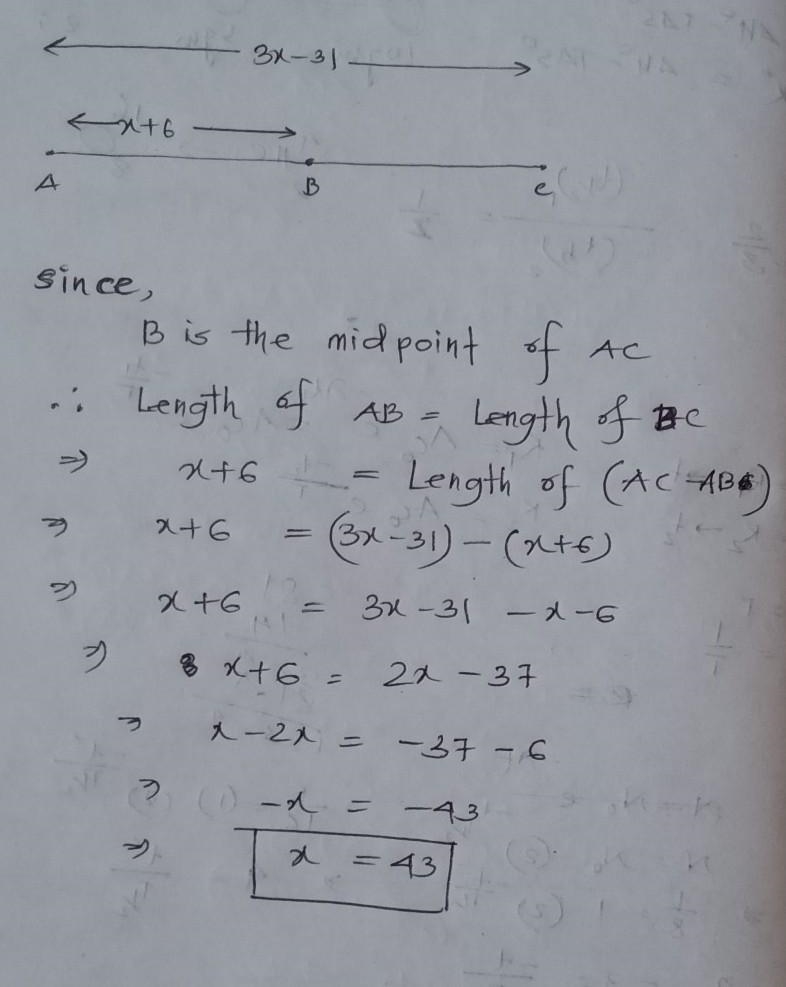 3x-31
x+6
A B C
since,
B is the midpoint of AC
∴ Length of AB = Length of BC
⇒ x+6 = Length of (AC-AB)
⇒ x+6 = (3x-31) - (x+6)
⇒ x+6 = 3x-31 -x-6
⇒ x+6 = 2x-37
⇒ x-2x = -37-6
⇒ -x = -43
⇒ x = 43